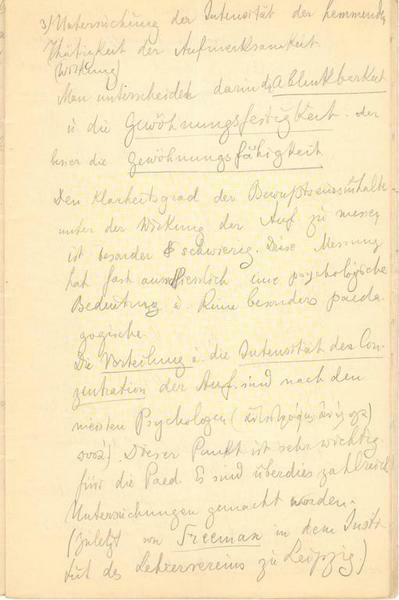 3) Untersuchung der Intensität der hemmenden
Thätigkeit der Aufmerksamkeit.
Wirkung)
Man unterscheidet dann d. Ablenkbarkeit
u die Gewöhnungsfestigkeit. der
die Gewöhnungsfähigkeit
Den Klarheitsgrad der Bewußtseinsinhalte
unter der Wirkung der Auf zu messen
ist besonder schwierig. Diese Messung
hat fast ausschliesslich eine psychologische
Bedeutung u. keine besonders paeda
gogische.
Die Verteilung u. die Intensität des Con
zentration der Auf. sind nach den
meisten Psychologen (
). Dieser Punkt ist sehr wichtig
für die Paed. Es sind überdies zahlreiche
Untersuchungen gemacht worden.
(Zuletzt von Freeman in dem Insti
tut des Lehrervereins zu Leipzig)